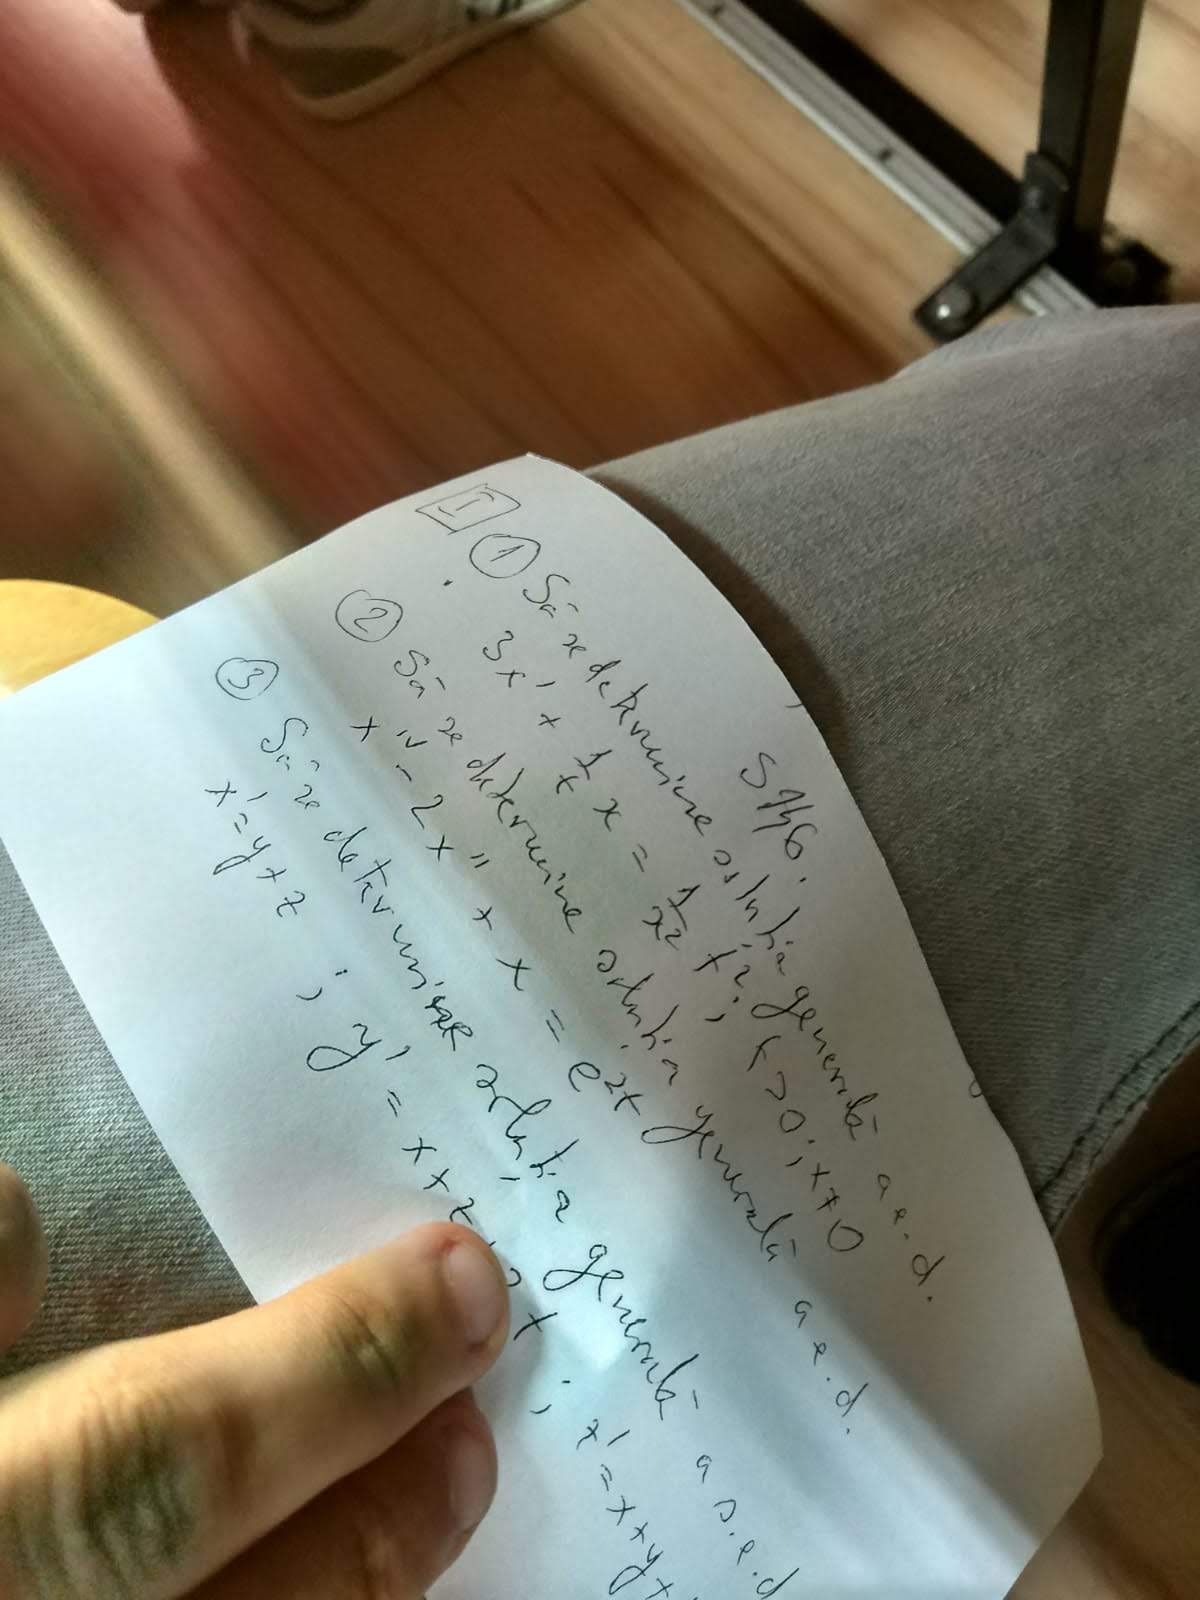 I
S
① Să se determine soluția generală a e.d.
3x' + 1/t x = 1/x² t²; t>0; x≠0
② Să se determine soluția generală a e.d.
x'''' - 2x'' + x = e^2t
③ Să se determine soluția generală a s.e.d
x' = y + z ; y' = x + z + 2t ; z' = x + y +